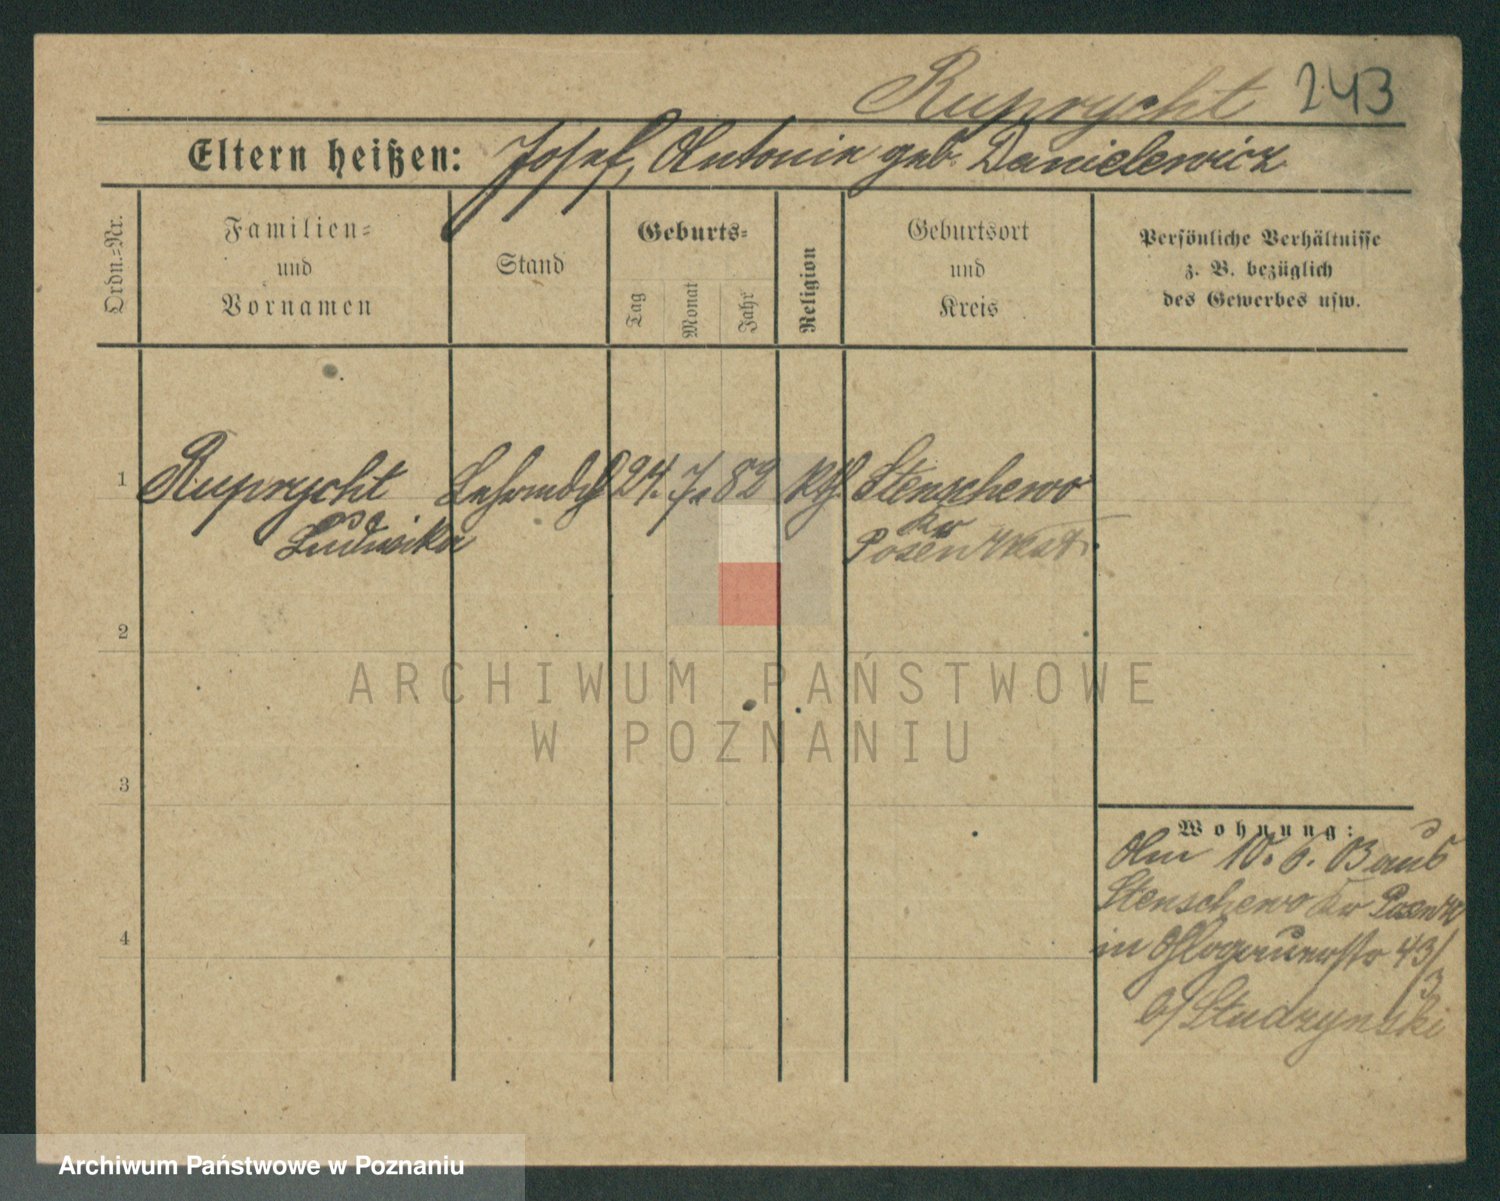 Ruprycht 243
Eltern heißen: Josef, Antonie geb. Danielewicz
Ordn.-Nr.
Familien-
und
Vornamen
Stand
Geburts-
Tag
Monat
Jahr
Religion
Geburtsort
und
Kreis
Persönliche Verhältnisse
z. B. bezüglich
des Gewerbes usw.
1 Ruprycht Lehrmdch 24. 7. 82 Kth Stenschewo
Ludwika Kr
Posen West.
2
3
4
Wohnung:
Am 10. 6. 03 aus
Stenschewo Kr Posen W
in Glogauerstr 43/
3
b/ Studzynski
ARCHIWUM PAŃSTWOWE
W POZNANIU
Archiwum Państwowe w Poznaniu